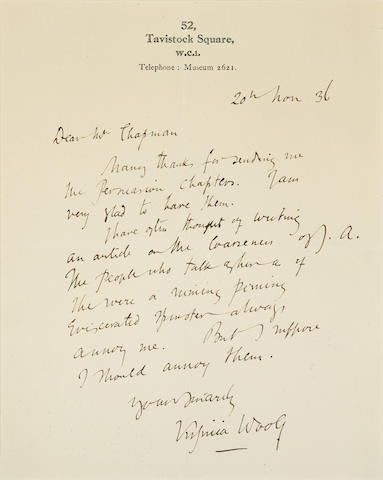 52,
Tavistock Square,
W.C.1.
Telephone: Museum 2621.
20th Nov 36
Dear Mr Chapman
Many thanks for sending me
the Persuasion Chapters. I am
very glad to have them.
I have often thought of writing
an article on the coarseness of J. A.
The people who talk of her as if
she were a niminy piminy
eviscerated spinster always
annoy me. But I suppose
I should annoy them.
Yours sincerely
Virginia Woolf